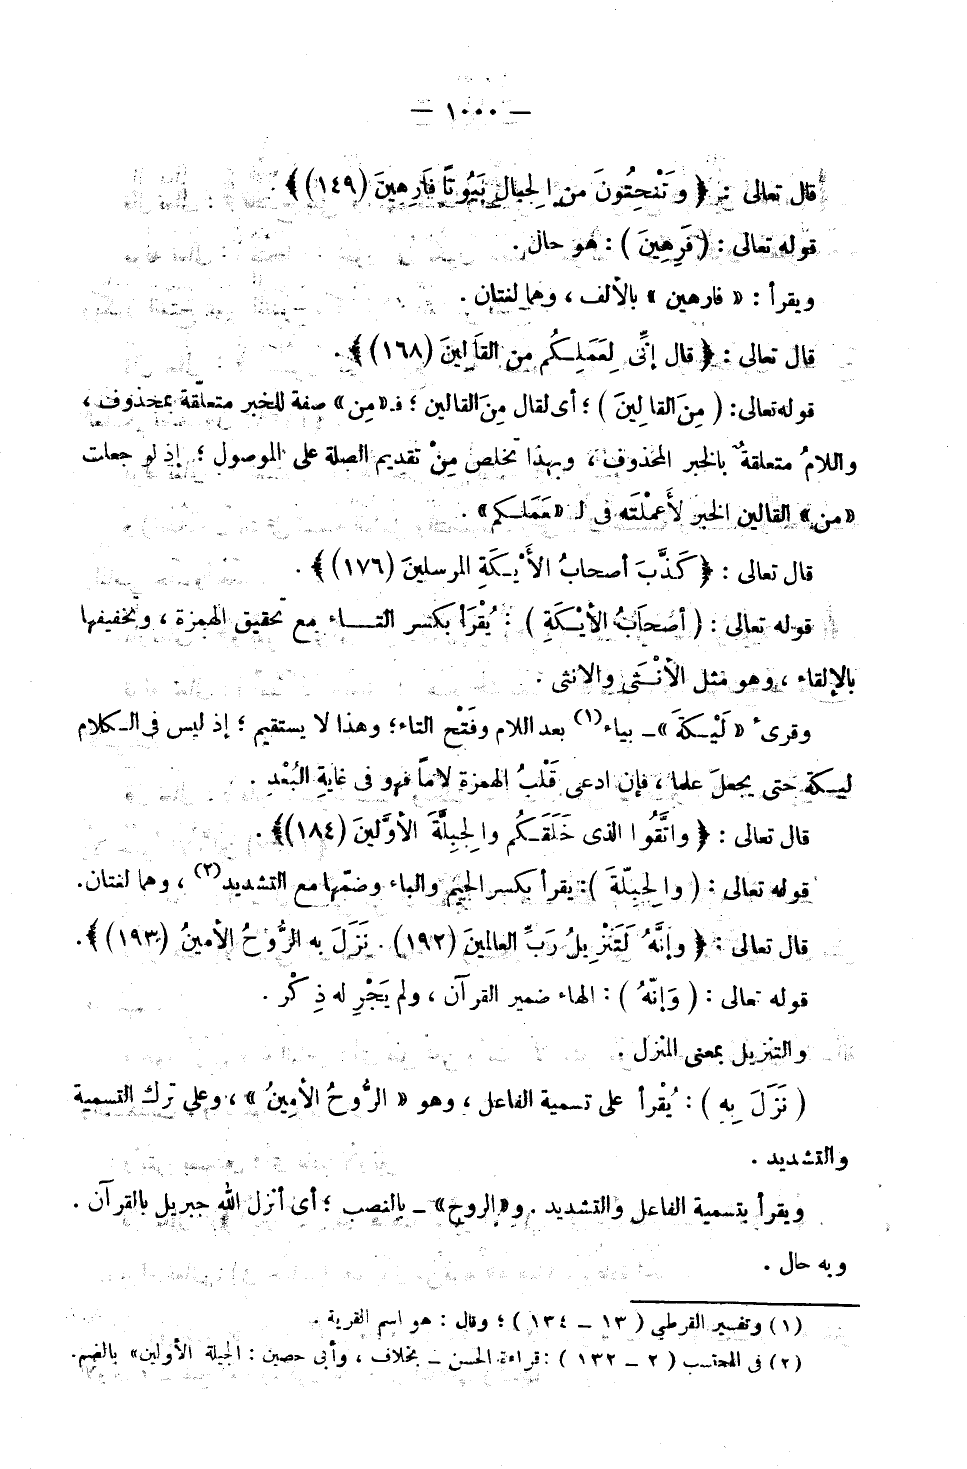 — ١٠٠٠ —
قال تعالى : ﴿ وتَنْحِتُونَ من الجبالِ بُيُوتًا فَارِهِينَ (١٤٩) ﴾ .
قوله تعالى : ( فَرِهِينَ ) : هو حال .
ويقرأ : « فارهين » بالألف ، وهما لغتان .
قال تعالى : ﴿ قال إنِّى لِعَمَلِكُم من القَالِينَ (١٦٨) ﴾ .
قوله تعالى : ( مِنَ القالِينَ ) ؛ أى لقال مِنَ القالين ؛ فـ «مِن» صفة للخبر متعلّقة بمحذوف ،
واللامُ متعلقةٌ بالخبر المحذوف ، وبهذا تخلص مِنْ تقديم الصلة على الموصول ؛ إذ لو جعلت
«من» القالين الخبر لأَعمْلَتَه فى لـ «عَمَلـكم» .
قال تعالى : ﴿ كَذَّبَ أصحابُ الأَيْـكَةِ المرسلينَ (١٧٦) ﴾ .
قوله تعالى : ( أصحَابُ الأيْـكَةِ ) : يُقْرَأ بكسر التـــاء مع تحقيق الهمزة ، وتخفيفها
بالإلقاء ، وهو مثل الأنْـثَى والانثى .
وقرىء « لَيْـكَةَ » ـ بياء (١) بعد اللام وفَتْح التاء ؛ وهذا لا يستقيم ؛ إذ ليس فى الـكلام
ليـكة حتى يجعلَ علما ، فإن ادعى قَلْبُ الهمزة لاماً فهو فى غايةِ البُعْدِ .
قال تعالى : ﴿ واتَّقُوا الذى خَلَقَـكُم والجِبِلَّةَ الأوَّلينَ (١٨٤) ﴾ .
قوله تعالى : ( والجِبِلّةَ ) : يقرأ بكسر الجيم والباء وضمّها مع التشديد (٢) ، وهما لغتان .
قال تعالى : ﴿ وإنَّهُ لَتَنْزِيلُ رَبِّ العالمينَ (١٩٢) . نَزَلَ به الرُّوحُ الأمينُ (١٩٣) ﴾ .
قوله تعالى : ( وَإنّهُ ) : الهاء ضمير القرآن ، ولم يَجْرِ له ذِكْر .
والتنزيل بمعنى المُنْزل .
( نَزَلَ بِهِ ) : يُقْرأ على تسمية الفاعل ، وهو « الرُّوحُ الأمِينُ » ، وعلى ترك التسمية
والتشديد .
ويقرأ بتسمية الفاعل والتشديد . و«الروح» ـ بالنصب ؛ أى أنزل اللّه جبريل بالقرآن .
وبه حال .
(١) وتفسير القرطبي ( ١٣ ـ ١٣٤ ) ؛ وقال : هو اسم القرية .
(٢) فى المحتسب ( ٢ ـ ١٣٢ ) : قراءة الحسن ـ بخلاف ، وأبى حصين : الجبلة الأولين» بالضم .